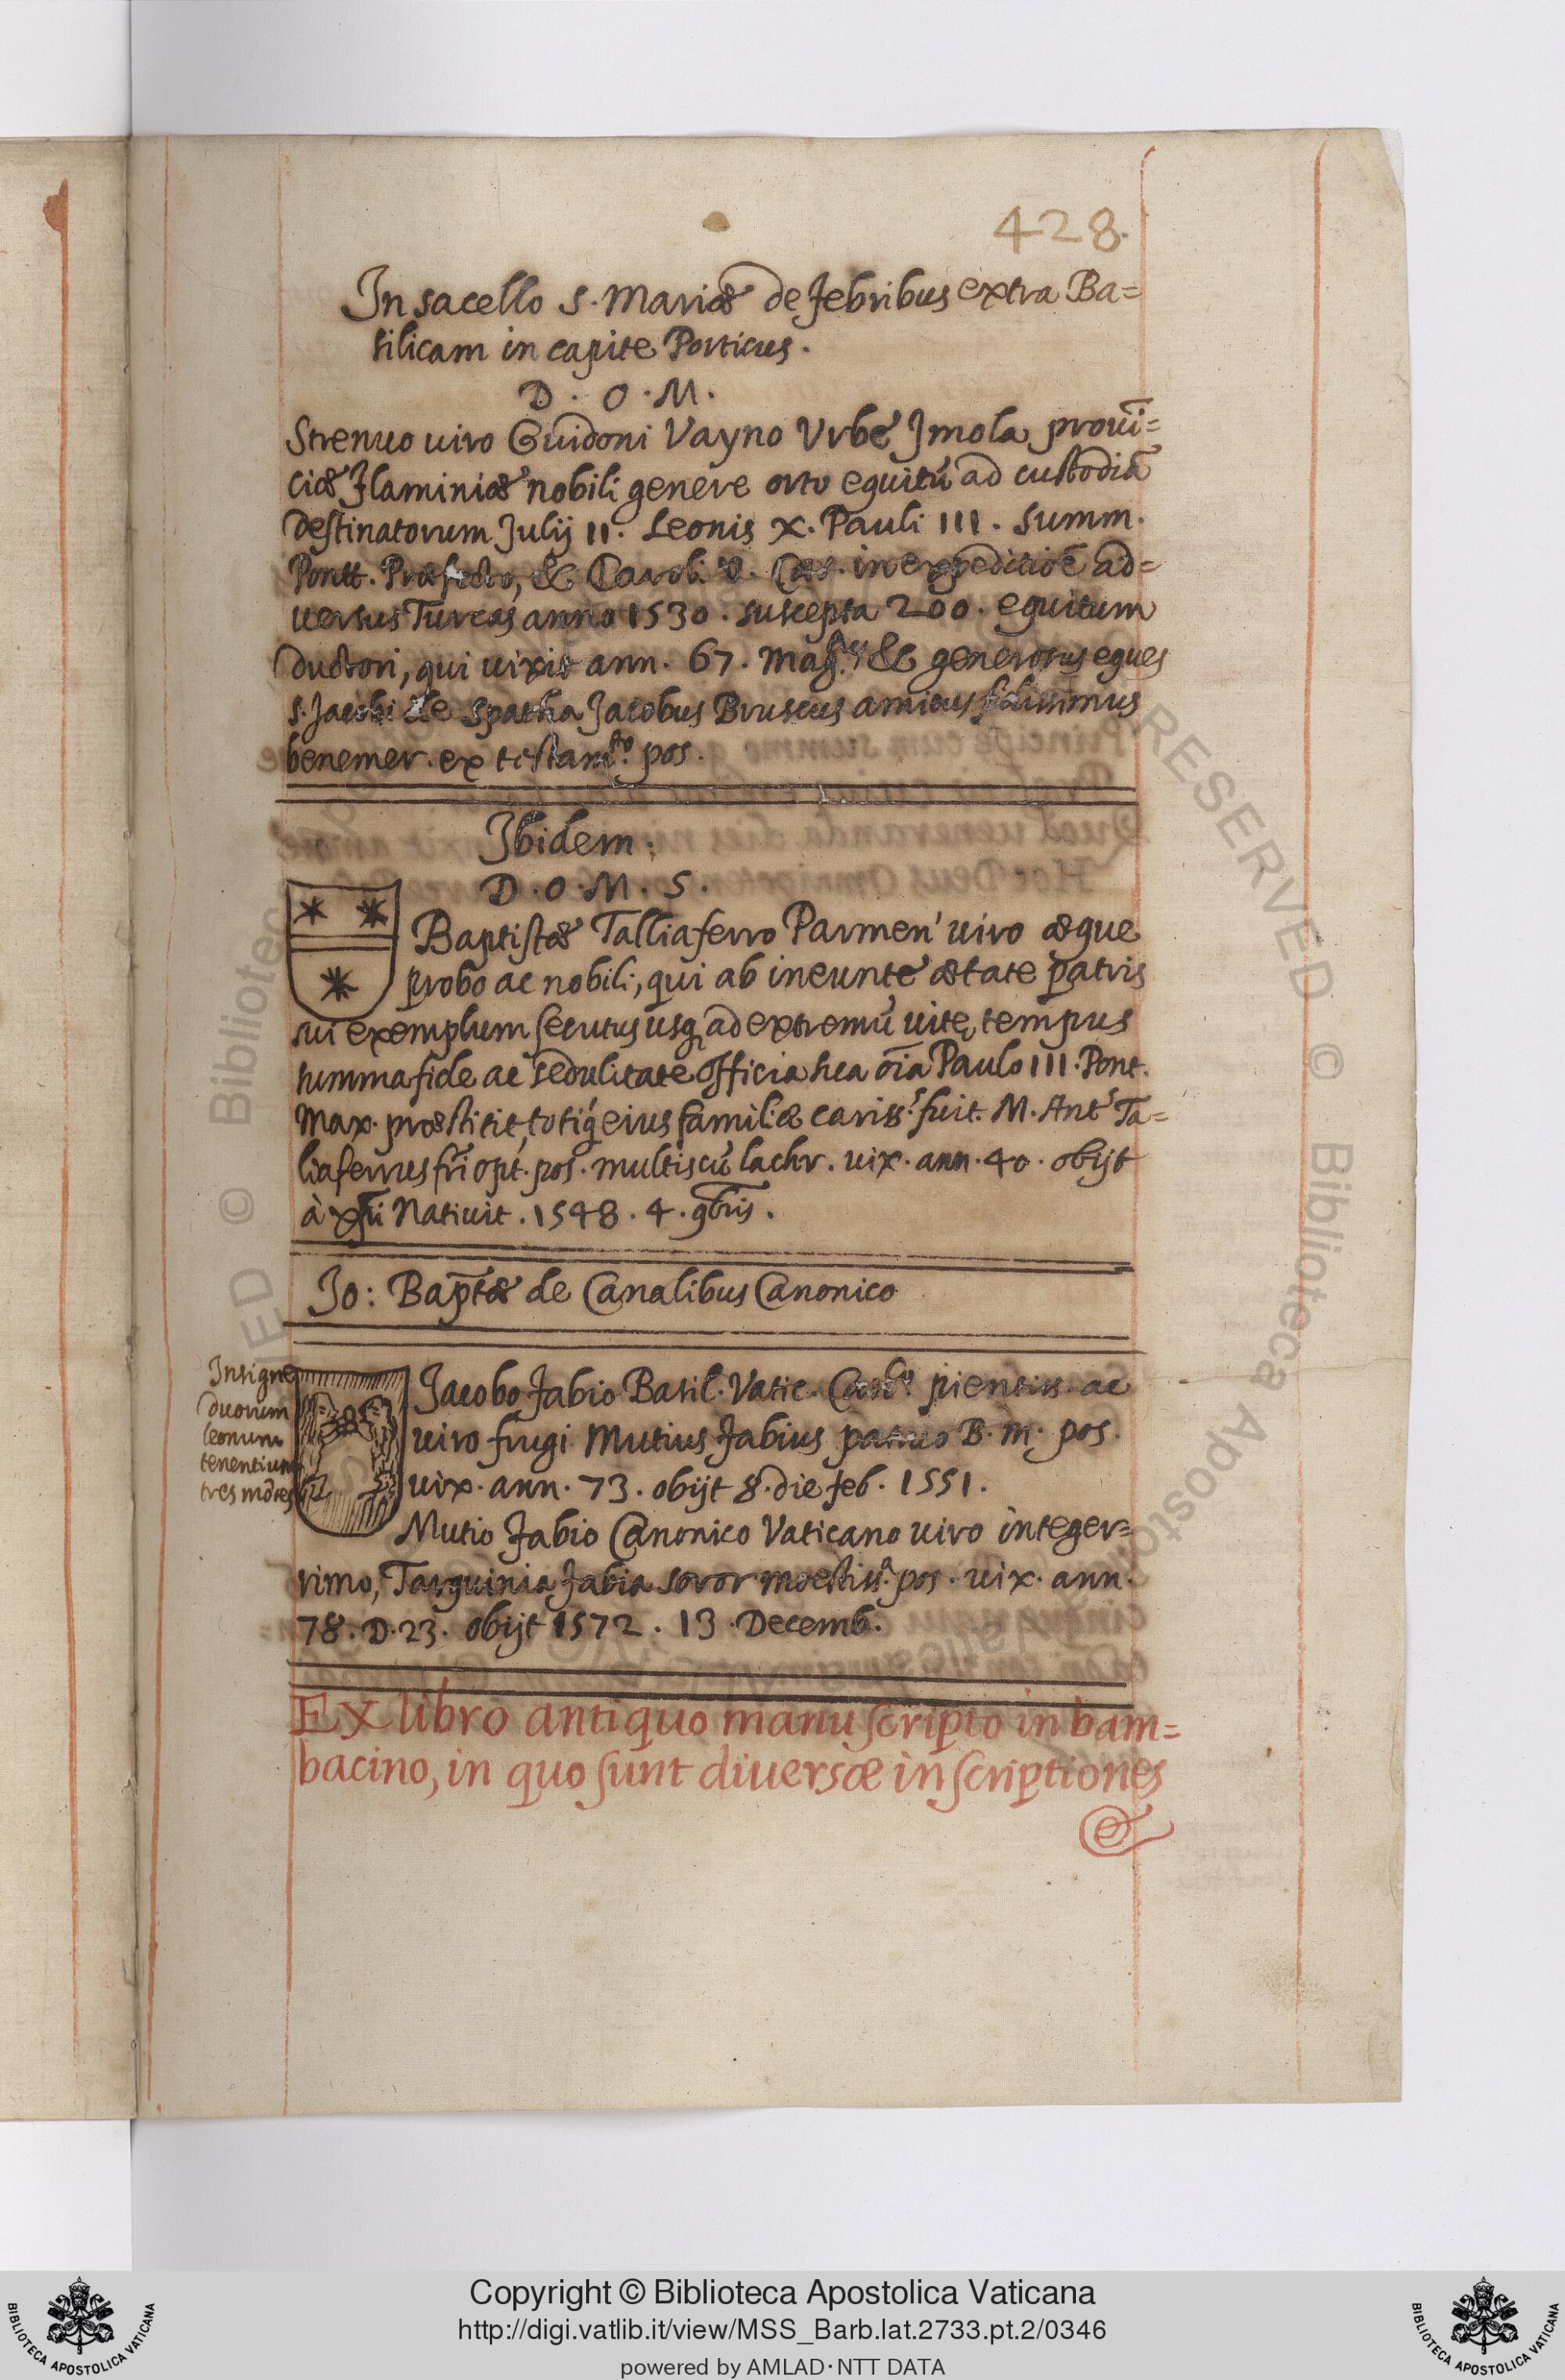 428.
In sacello S. Mariæ de febribus extra Ba=
silicam in capite Porticus.
D. O. M.
Strenuo uiro Guidoni Vayno Vrbe Imola prouī=
ciæ Flaminiæ nobili genere orto equitū ad custodiā
destinatorum Julij II. Leonis X. Pauli III. Summ.
Pontt. Præfecto, & Caroli V. Cæs. in expeditiōe ad=
uersus Turcas anno 1530. suscepta 200. equitum
ductori, qui uixit ann. 67. & generosus eques
S. Jacobi de Spatha Jacobus Bruscus amicus fidissimus
benemer. ex testam.to pos.
Ibidem.
D. O. M. S.
Baptistæ Talliaferro Parmen' uiro æque
probo ac nobili, qui ab ineunte ætate patris
sui exemplum secutus usq. ad extremū uitę tempus
summa fide ac sedulitate officia sua oīa Paulo III. Pont.
Max. præstitit, totiq́ eius familiæ cariss.s fuit. M. Ant.s Ta=
liaferrus fr̄i opt. pos. multis cū lachr. uix. ann. 40. obijt
à xp̄i Natiuit. 1548. 4. 9b̄ris.
Io: Bap̄tæ de Canalibus Canonico
Insigne
duorum
leonum
tenentium
tres mōtes
Jacobo Fabio Basil. Vatic. Can.co pientiss. ac
uiro frugi Mutius Fabius patruo B. M. pos.
uix. ann. 73. obijt 8. die feb. 1551.
Mutio Fabio Canonico Vaticano uiro integer=
rimo, Tarquinia Fabia soror moestiss.a pos. uix. ann.
78. D. 23. obijt 1572. 13. Decemb.
Ex libro antiquo manuscripto in bam=
bacino, in quo sunt diuersæ inscriptiones
&
RESERVED © Biblioteca Apostolica
Copyright © Biblioteca Apostolica Vaticana
http://digi.vatlib.it/view/MSS_Barb.lat.2733.pt.2/0346
powered by AMLAD·NTT DATA
BIBLIOTECA APOSTOLICA VATICANA
BIBLIOTECA APOSTOLICA VATICANA